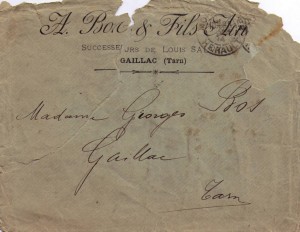 A. Boc & Fils
SUCCESSEURS DE LOUIS
GAILLAC (Tarn)
Madame Georges Bos
Gaillac
Tarn